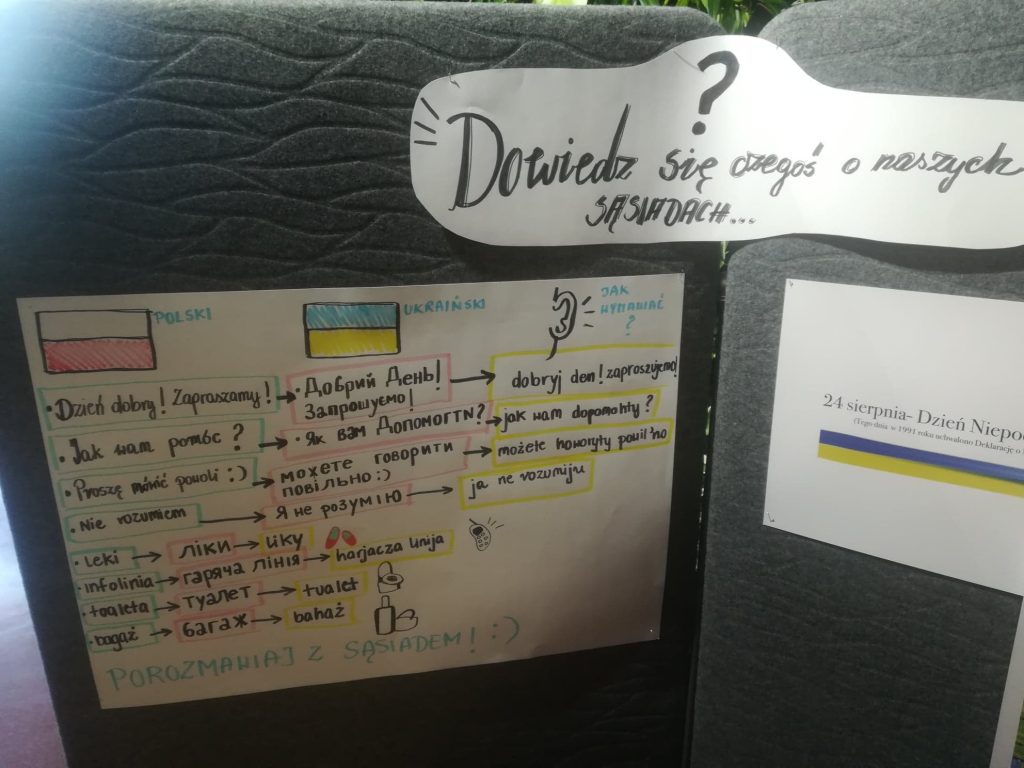 ?
Dowiedz się czegoś o naszych
SĄSIADACH...
POLSKI
UKRAIŃSKI
JAK
WYMAWIAĆ
?
• Dzień dobry! Zapraszamy! → • Добрий День! Запрошуємо! → dobryj den! zaproszujemo!
• Jak wam pomóc? → • Як вам Допомогти? → jak wam dopomohty?
• Proszę mówić powoli :) → можете говорити повільно :) → możete howoryty powil'no
• Nie rozumiem → Я не розумію → ja ne rozumiju
• leki → ліки → liky
• infolinia → гаряча лінія → harjacza linija
• toaleta → туалет → tualet
• bagaż → багаж → bahaż
POROZMAWIAJ Z SĄSIADEM! :)
24 sierpnia- Dzień
(Tego dnia w 1991 roku uchwalono Deklarację o